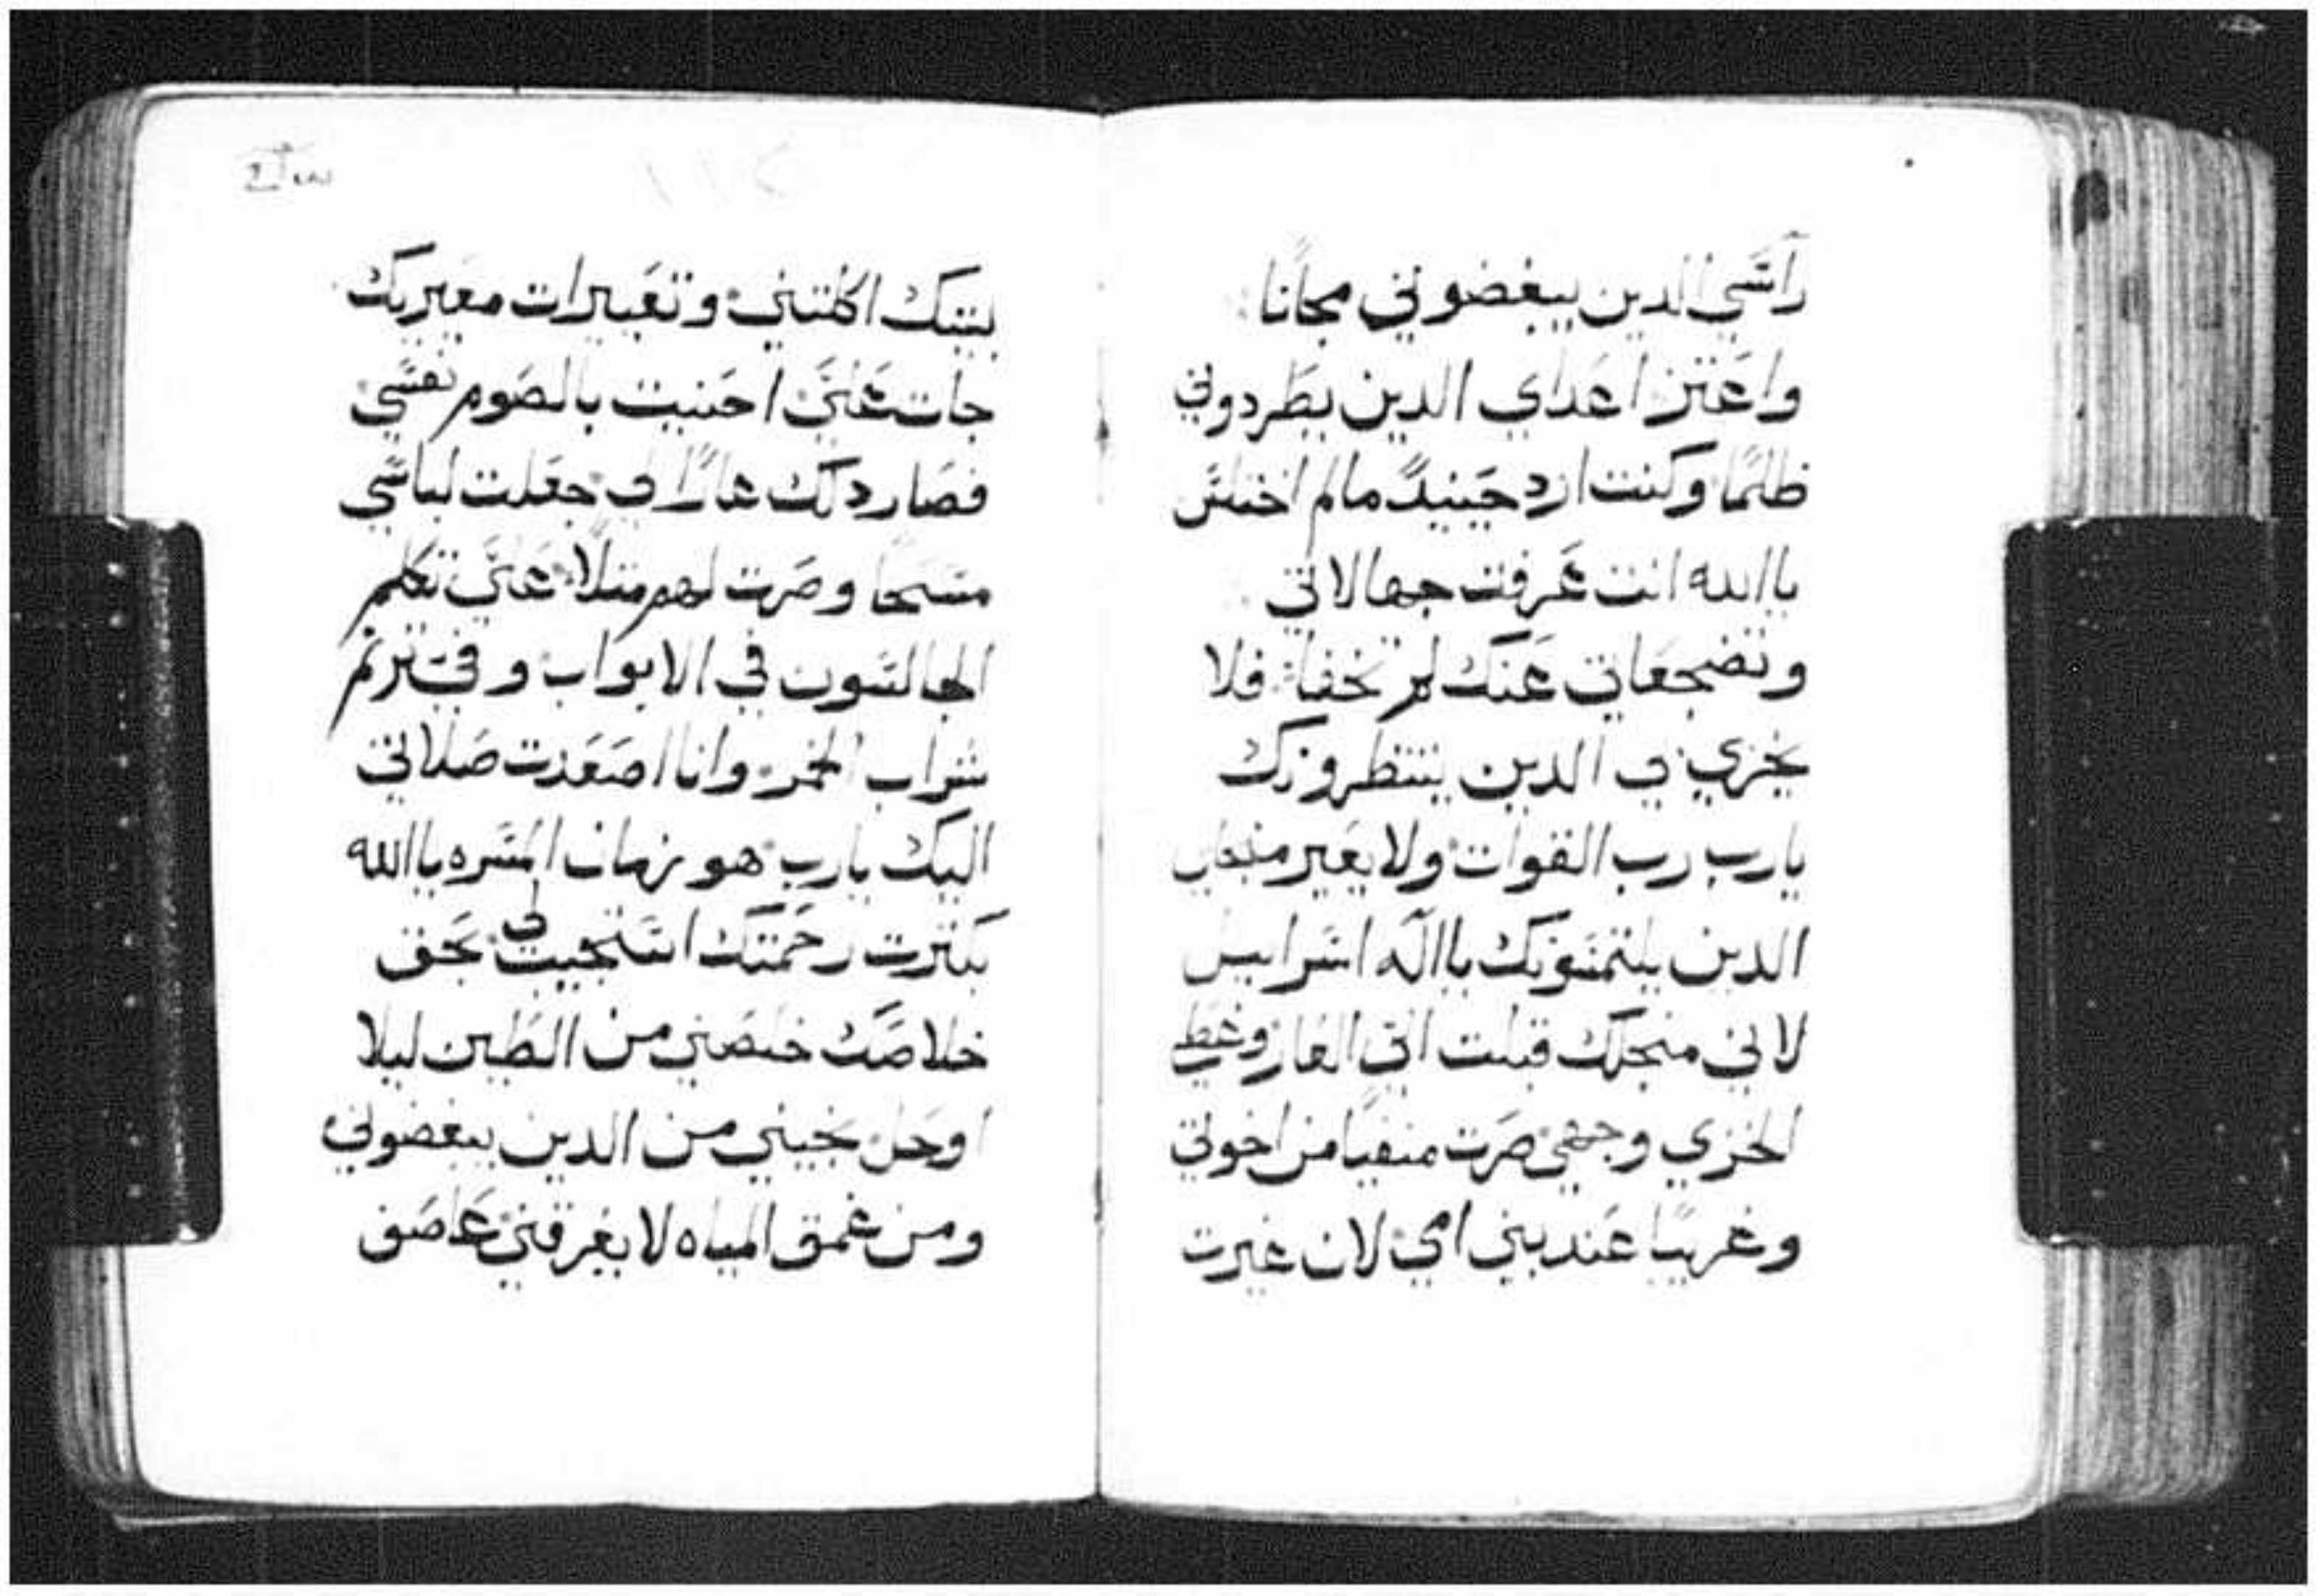 راسي الدين يبغضوني مجانا
واعتز اعداي الدين يطردوني
ظلمًا وكنت ارد حينيدً مالم اختلس
ياالله انت عرفت جهالاتي
وتضجعاتي عنك لم تخفا فلا
يخزي بي الدين ينتظرونك
يارب رب القوات ولا يعير منجلي
الدين يلتمسونك ياالَه اسراييل
لاني منجلك قبلت اني العار وغطي
الخزي وجهي صرت منفيًا من اخوتي
وغريبًا عند بني امي لان غيرت
بيتك اكلتني وتعييرات معيريك
جات علَيَّ احنيت بالصوم نفسي
فصار دلك عارًا لي جعلت لباسي
مسحًا وصرت لهم مثلًا علَيَّ تكلم
الجالسون في الابواب وفيَ ترنم
شراب الخمر وانا اصعدت صلاتي
اليك يارب هو زمان المسره ياالله
بكثرت رحمتك استجيب لي بحق
خلاصك خلصني من الطين ليلا
اوحل نجيني من الدين يبغضوني
ومن عمق المياه لا يغرقني عاصف